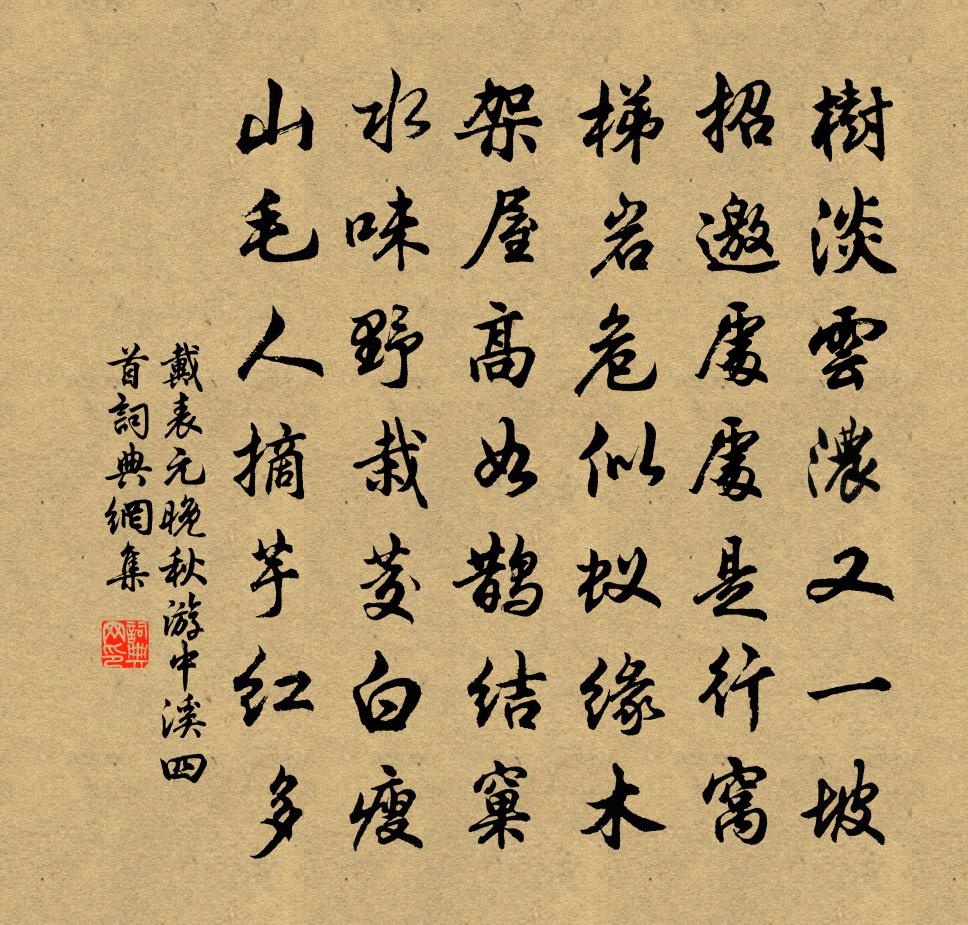 樹淡雲濃又一坡
招邀處處是行窩
梯岩危似蚁緣木
架屋高如鹊結窠
水味野栽茭白瘦
山毛人摘芋红多
戴表元晚秋游中溪四
首詞典網集
詞典網印